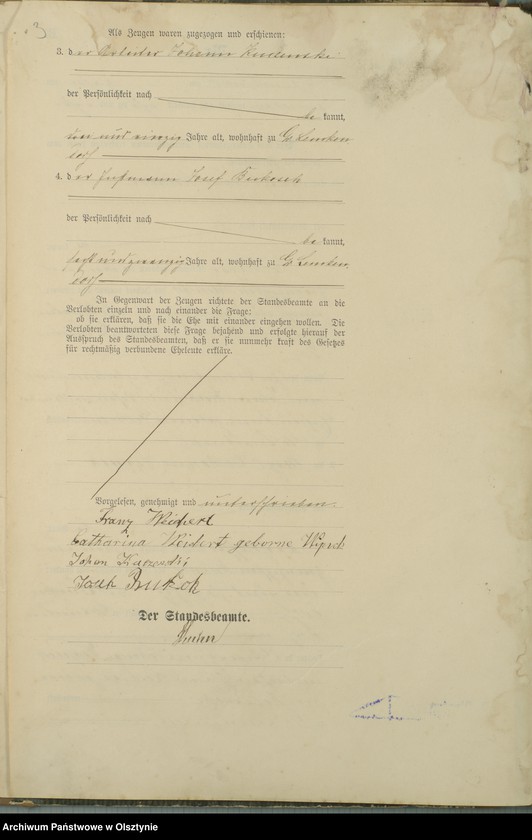 Als Zeugen waren zugezogen und erschienen:
3. der Arbeiter Johann
der Persönlichkeit nach
be kannt,
Jahre alt, wohnhaft zu Gr Lemken
dorf
4. der Josef
der Persönlichkeit nach
be kannt,
Jahre alt, wohnhaft zu Gr Lemken
dorf
In Gegenwart der Zeugen richtete der Standesbeamte an die
Verlobten einzeln und nach einander die Frage:
ob sie erklären, daß sie die Ehe mit einander eingehen wollen. Die
Verlobten beantworteten diese Frage bejahend und erfolgte hierauf der
Ausspruch des Standesbeamten, daß er sie nunmehr kraft des Gesetzes
für rechtmäßig verbundene Eheleute erkläre.
Vorgelesen, genehmigt und unterschrieben
Franz Weichert
Catharina geborne
Johan
Der Standesbeamte.
Archiwum Państwowe w Olsztynie